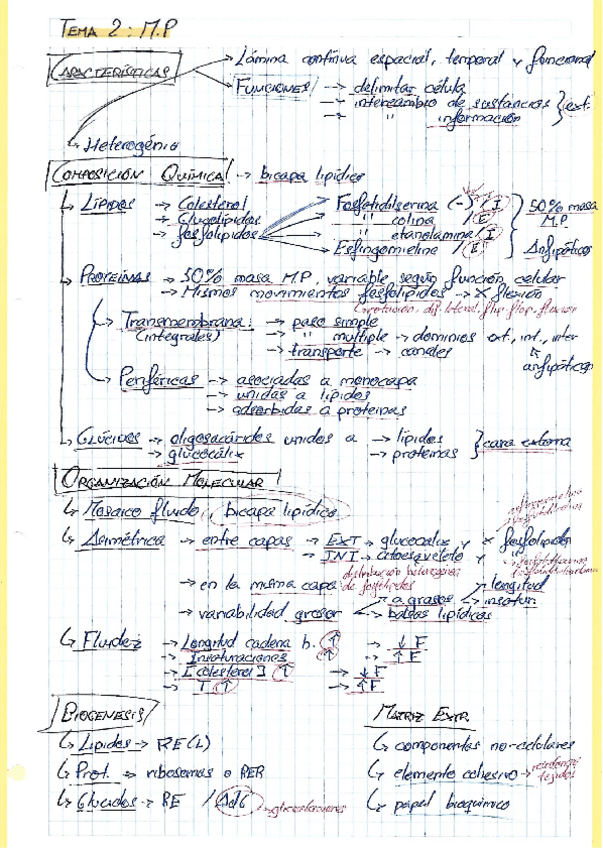 TEMA 2: M.P
CARACTERÍSTICAS
→ Lámina continua espacial, temporal y funcional
→ FUNCIONES → delimitar célula
→ intercambio de sustancias } ext.
→ " información
↳ Heterogénia
COMPOSICIÓN QUÍMICA → bicapa lipídica
↳ LÍPIDOS → Colesterol
→ Glucolípidos
→ fosfolípidos
Fosfatidilserina (-) / I
" colina / E
" etanolamina / I
Esfingomielina / E
} 50% masa M.P
Anfipáticos
↳ PROTEÍNAS → 50% masa M.P, variable según función celular
→ Mismos movimientos fosfolípidos → X flexión
(rotación, dif. lateral, flip-flop, flexión
→ Transmembrana: → paso simple
(integrales) → " multiple → dominios ext., int., inter
→ transporte → canales
anfipático
→ Periféricas → asociadas a monocapa
→ unidas a lípidos
→ adsorbidas a proteinas
↳ GLÚCIDOS → oligosacáridos unidos a → lípidos } cara externa
→ glucocálix → proteinas
ORGANIZACIÓN MOLECULAR
↳ Mosaico fluido, bicapa lipídica
↳ Asimétrica → entre capas → EXT → glucocalix y X fosfolípidos
→ INT → citoesqueleto y
→ en la misma capa distribución heterogénea de fosfolípidos
→ variabilidad grosor → a. grasos → longitud
→ insatur.
→ balsas lipídicas
↳ Fluidez → Longitud cadena h. ↑ → ↓ F
→ Insaturaciones ↑ → ↑ F
→ [colesterol] ↑ → ↓ F
→ T ↑ → ↑ F
BIOGENESIS
↳ Lípidos → RE (L)
↳ Prot. → ribosomas o RER
↳ Glúcidos → RE / AdG → glicosilaciones
MATRIZ EXTR.
↳ componentes no-celulares
↳ elemento cohesivo → tejidos
↳ papel bioquímico